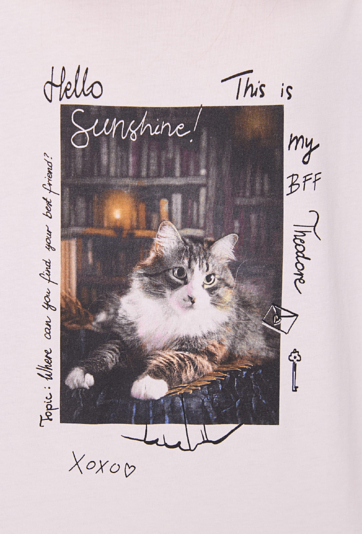 Hello
Sunshine!
This is
my
BFF
Theodore
Topic: Where can you find your best friend?
XOXO♡